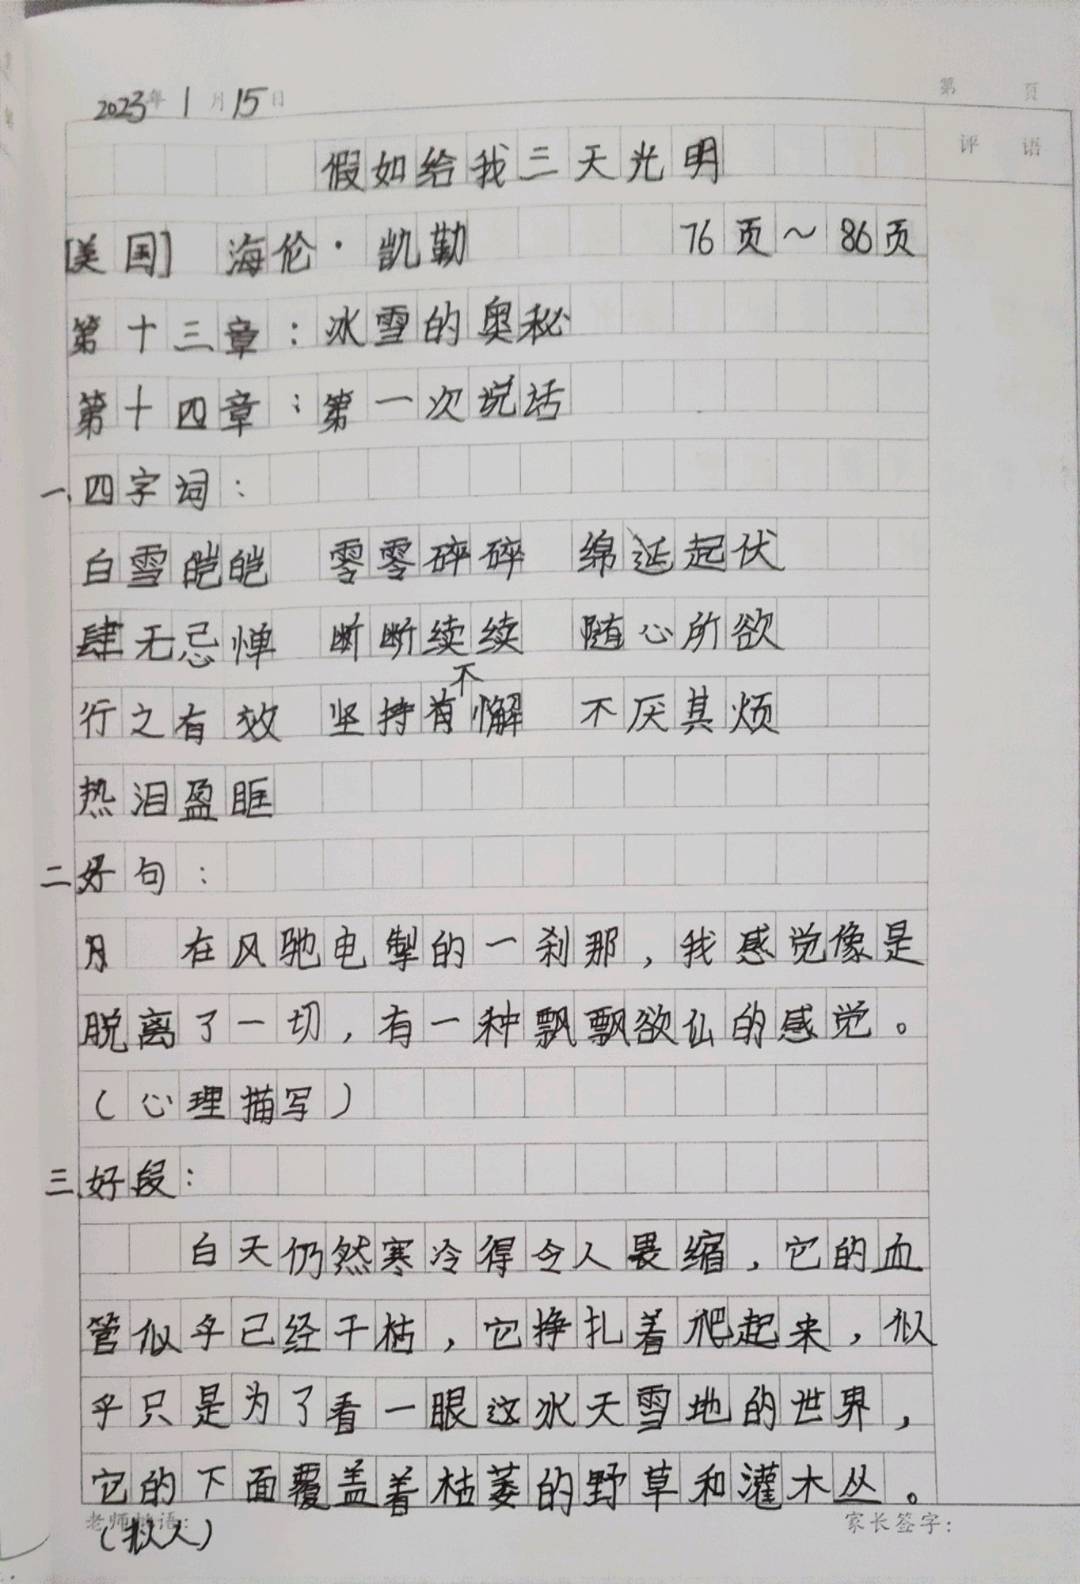 2023年1月15日
第 页
评 语
假如给我三天光明
[美国] 海伦·凯勒 76页～86页
第十三章：冰雪的奥秘
第十四章：第一次说话
一、四字词：
白雪皑皑 零零碎碎 绵延起伏
肆无忌惮 断断续续 随心所欲
不
行之有效 坚持有懈 不厌其烦
热泪盈眶
二好句：
月 在风驰电掣的一刹那，我感觉像是
脱离了一切，有一种飘飘欲仙的感觉。
（心理描写）
三、好段：
白天仍然寒冷得令人畏缩，它的血
管似乎已经干枯，它挣扎着爬起来，似
乎只是为了看一眼这冰天雪地的世界，
它的下面覆盖着枯萎的野草和灌木丛。
老师 语：
家长签字：
（拟人）